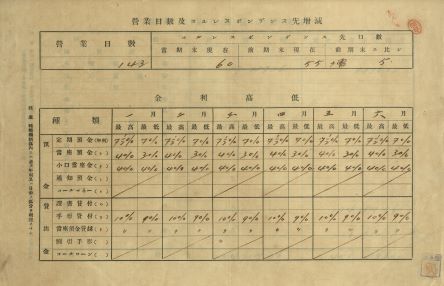 営業日数及コルレスポンデンス先増減
営業日数 コルレスポンデンス先口数
当期末現在 前期末現在 前期末ニ比シ
143 60 55 増 5
金利高低
種類 一月 二月 三月 四月 五月 六月
最高 最低 最高 最低 最高 最低 最高 最低 最高 最低 最高 最低
預金
定期預金(年利) 7½% 7% 7½% 7% 7½% 7% 7½% 7% 7½% 7% 7½% 7%
当座預金(〃) 4% 3% 4% 3% 4% 3% 4% 3% 4% 3% 4% 3%
小口当座預金(〃) 4% 4% 4% 4% 4% 4% 4% 4% 4% 4% 4% 4%
通知預金(〃)
コールマネー(〃)
貸出金
証書貸付(〃)
手形貸付(〃) 10% 9% 10% 9% 10% 9% 10% 9% 10% 9% 10% 9%
当座預金貸越(〃) 〃 〃 〃 〃 〃 〃 〃 〃 〃 〃 〃 〃
割引手形(〃)
コールローン(〃)